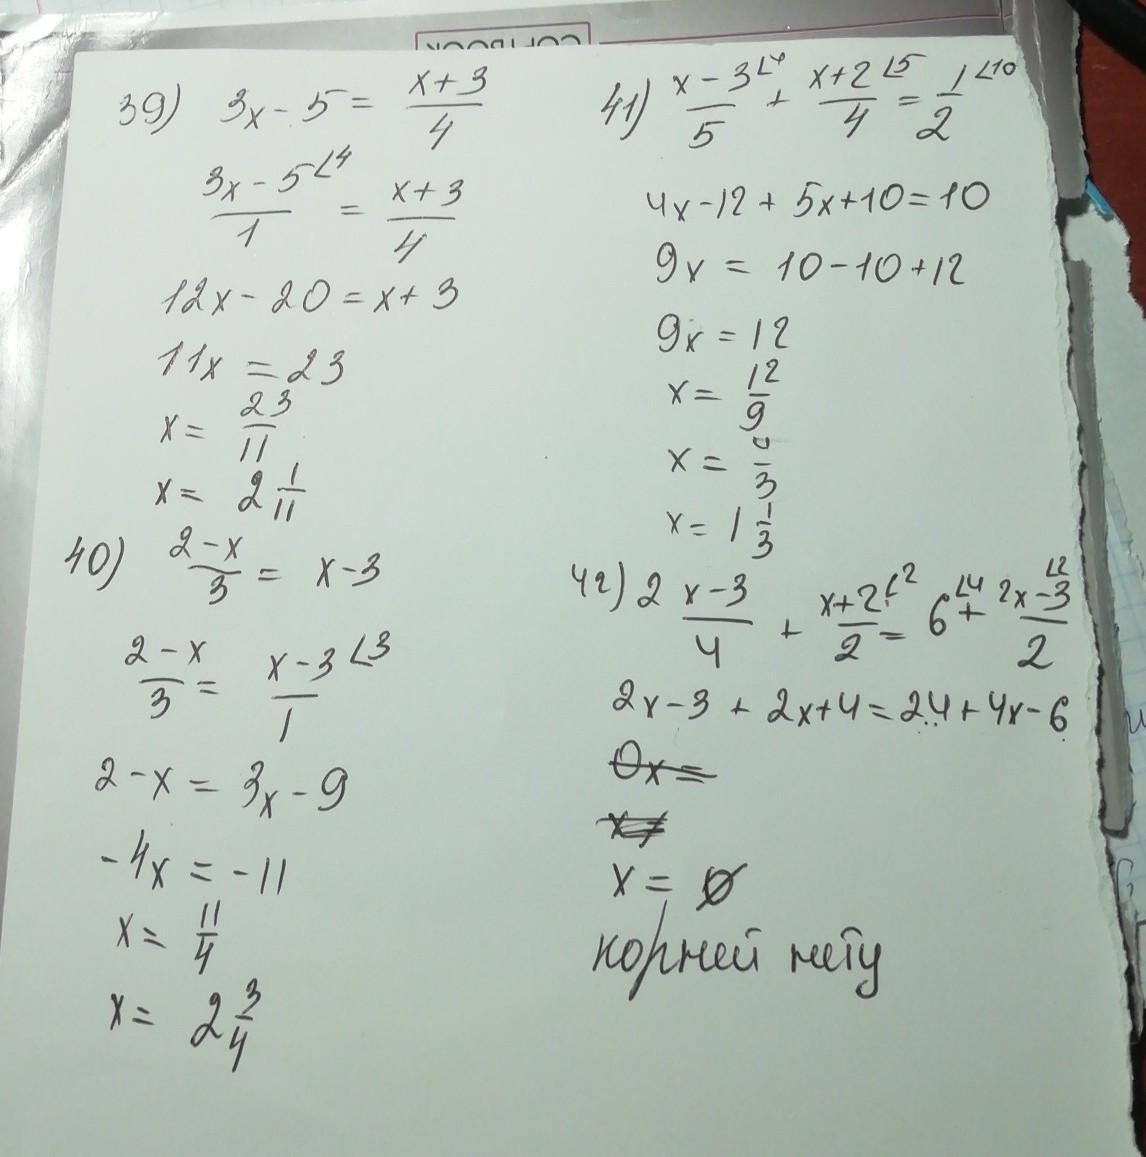 39) 3x - 5 = x+3/4
3x - 5∠4/1 = x+3/4
12x - 20 = x + 3
11x = 23
x = 23/11
x = 2 1/11
40) 2-x/3 = x-3
2-x/3 = x-3∠3/1
2 - x = 3x - 9
-4x = -11
x = 11/4
x = 2 3/4
41) x-3∠4/5 + x+2∠5/4 = 1∠10/2
4x-12 + 5x+10=10
9x = 10-10+12
9x = 12
x = 12/9
x = 4/3
x = 1 1/3
42) 2 x-3/4 + x+2∠2/2 = 6∠4 + 2x-3∠2/2
2x-3 + 2x+4=24+4x-6
0x=
x=
x = ∅
корней нету